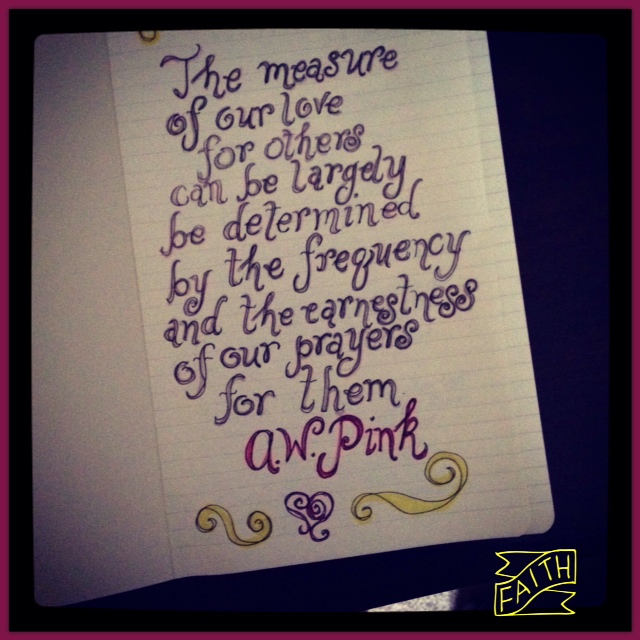 The measure
of our love
for others
can be largely
be determined
by the frequency
and the earnestness
of our prayers
for them
A.W. Pink
FAITH